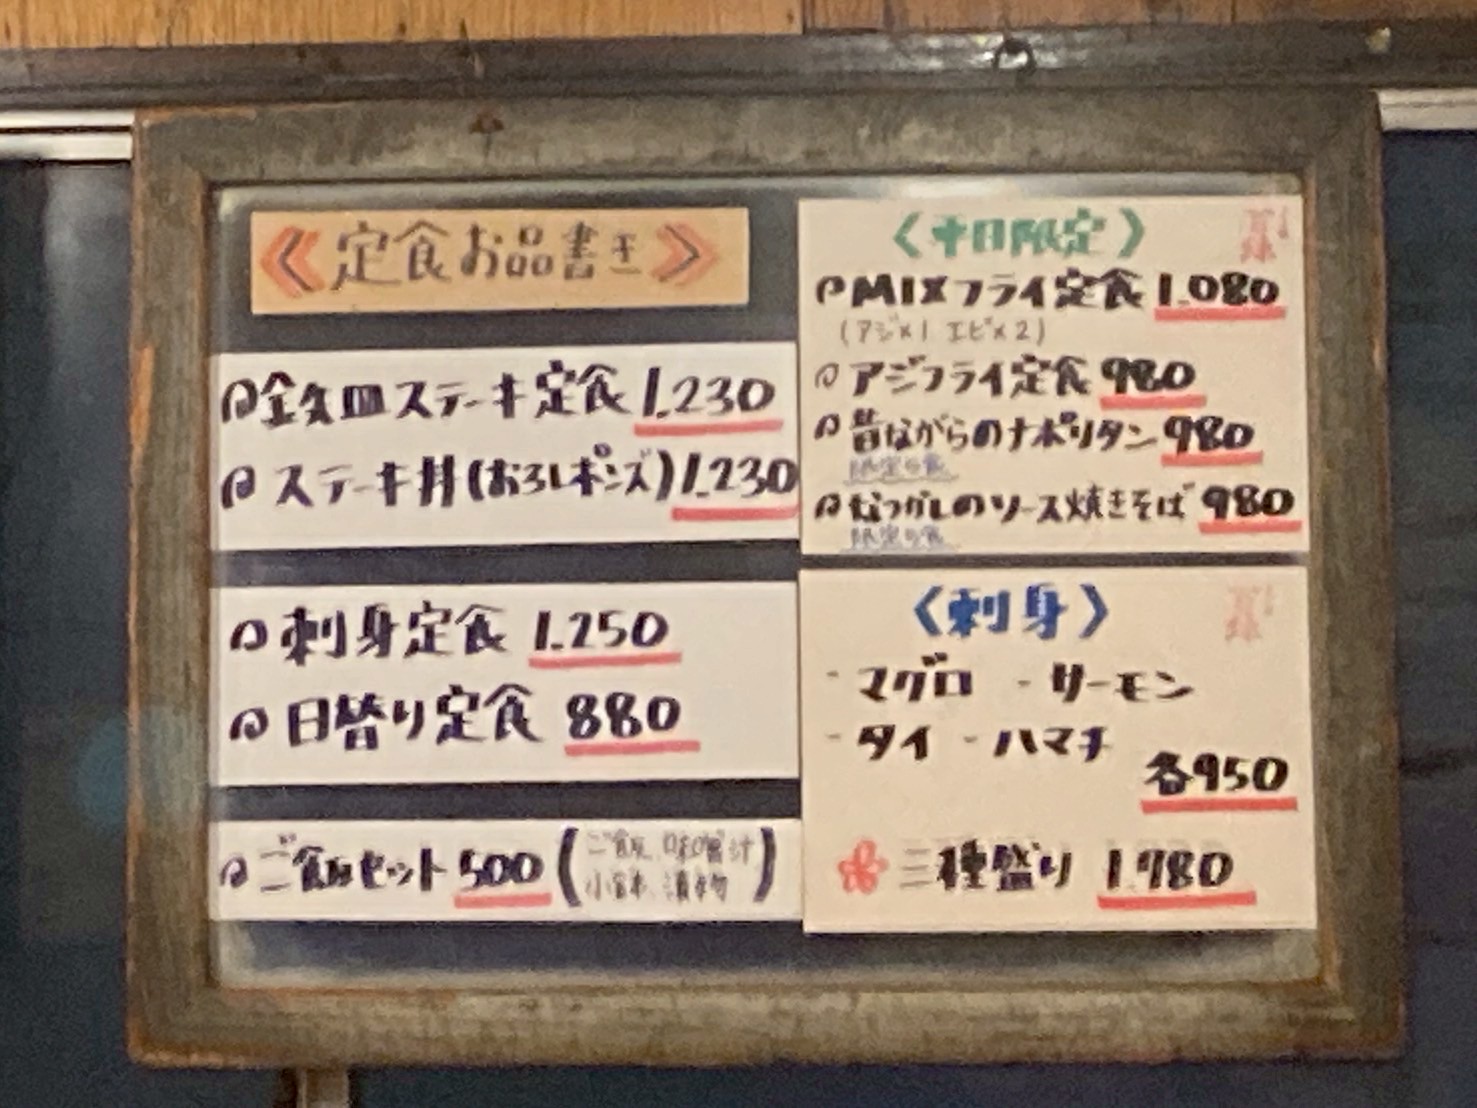 《定食お品書き》
鉄皿ステーキ定食 1.230
ステーキ丼(おろしポンズ) 1.230
刺身定食 1.250
日替り定食 880
ご飯セット 500 (ご飯、味噌汁
小鉢、漬物)
〈平日限定〉
MIXフライ定食 1.080
(アジ×1 エビ×2)
アジフライ定食 980
昔ながらのナポリタン 980
限定5食
なつかしのソース焼きそば 980
限定5食
〈刺身〉
- マグロ - サーモン
- タイ - ハマチ
各950
三種盛り 1.980